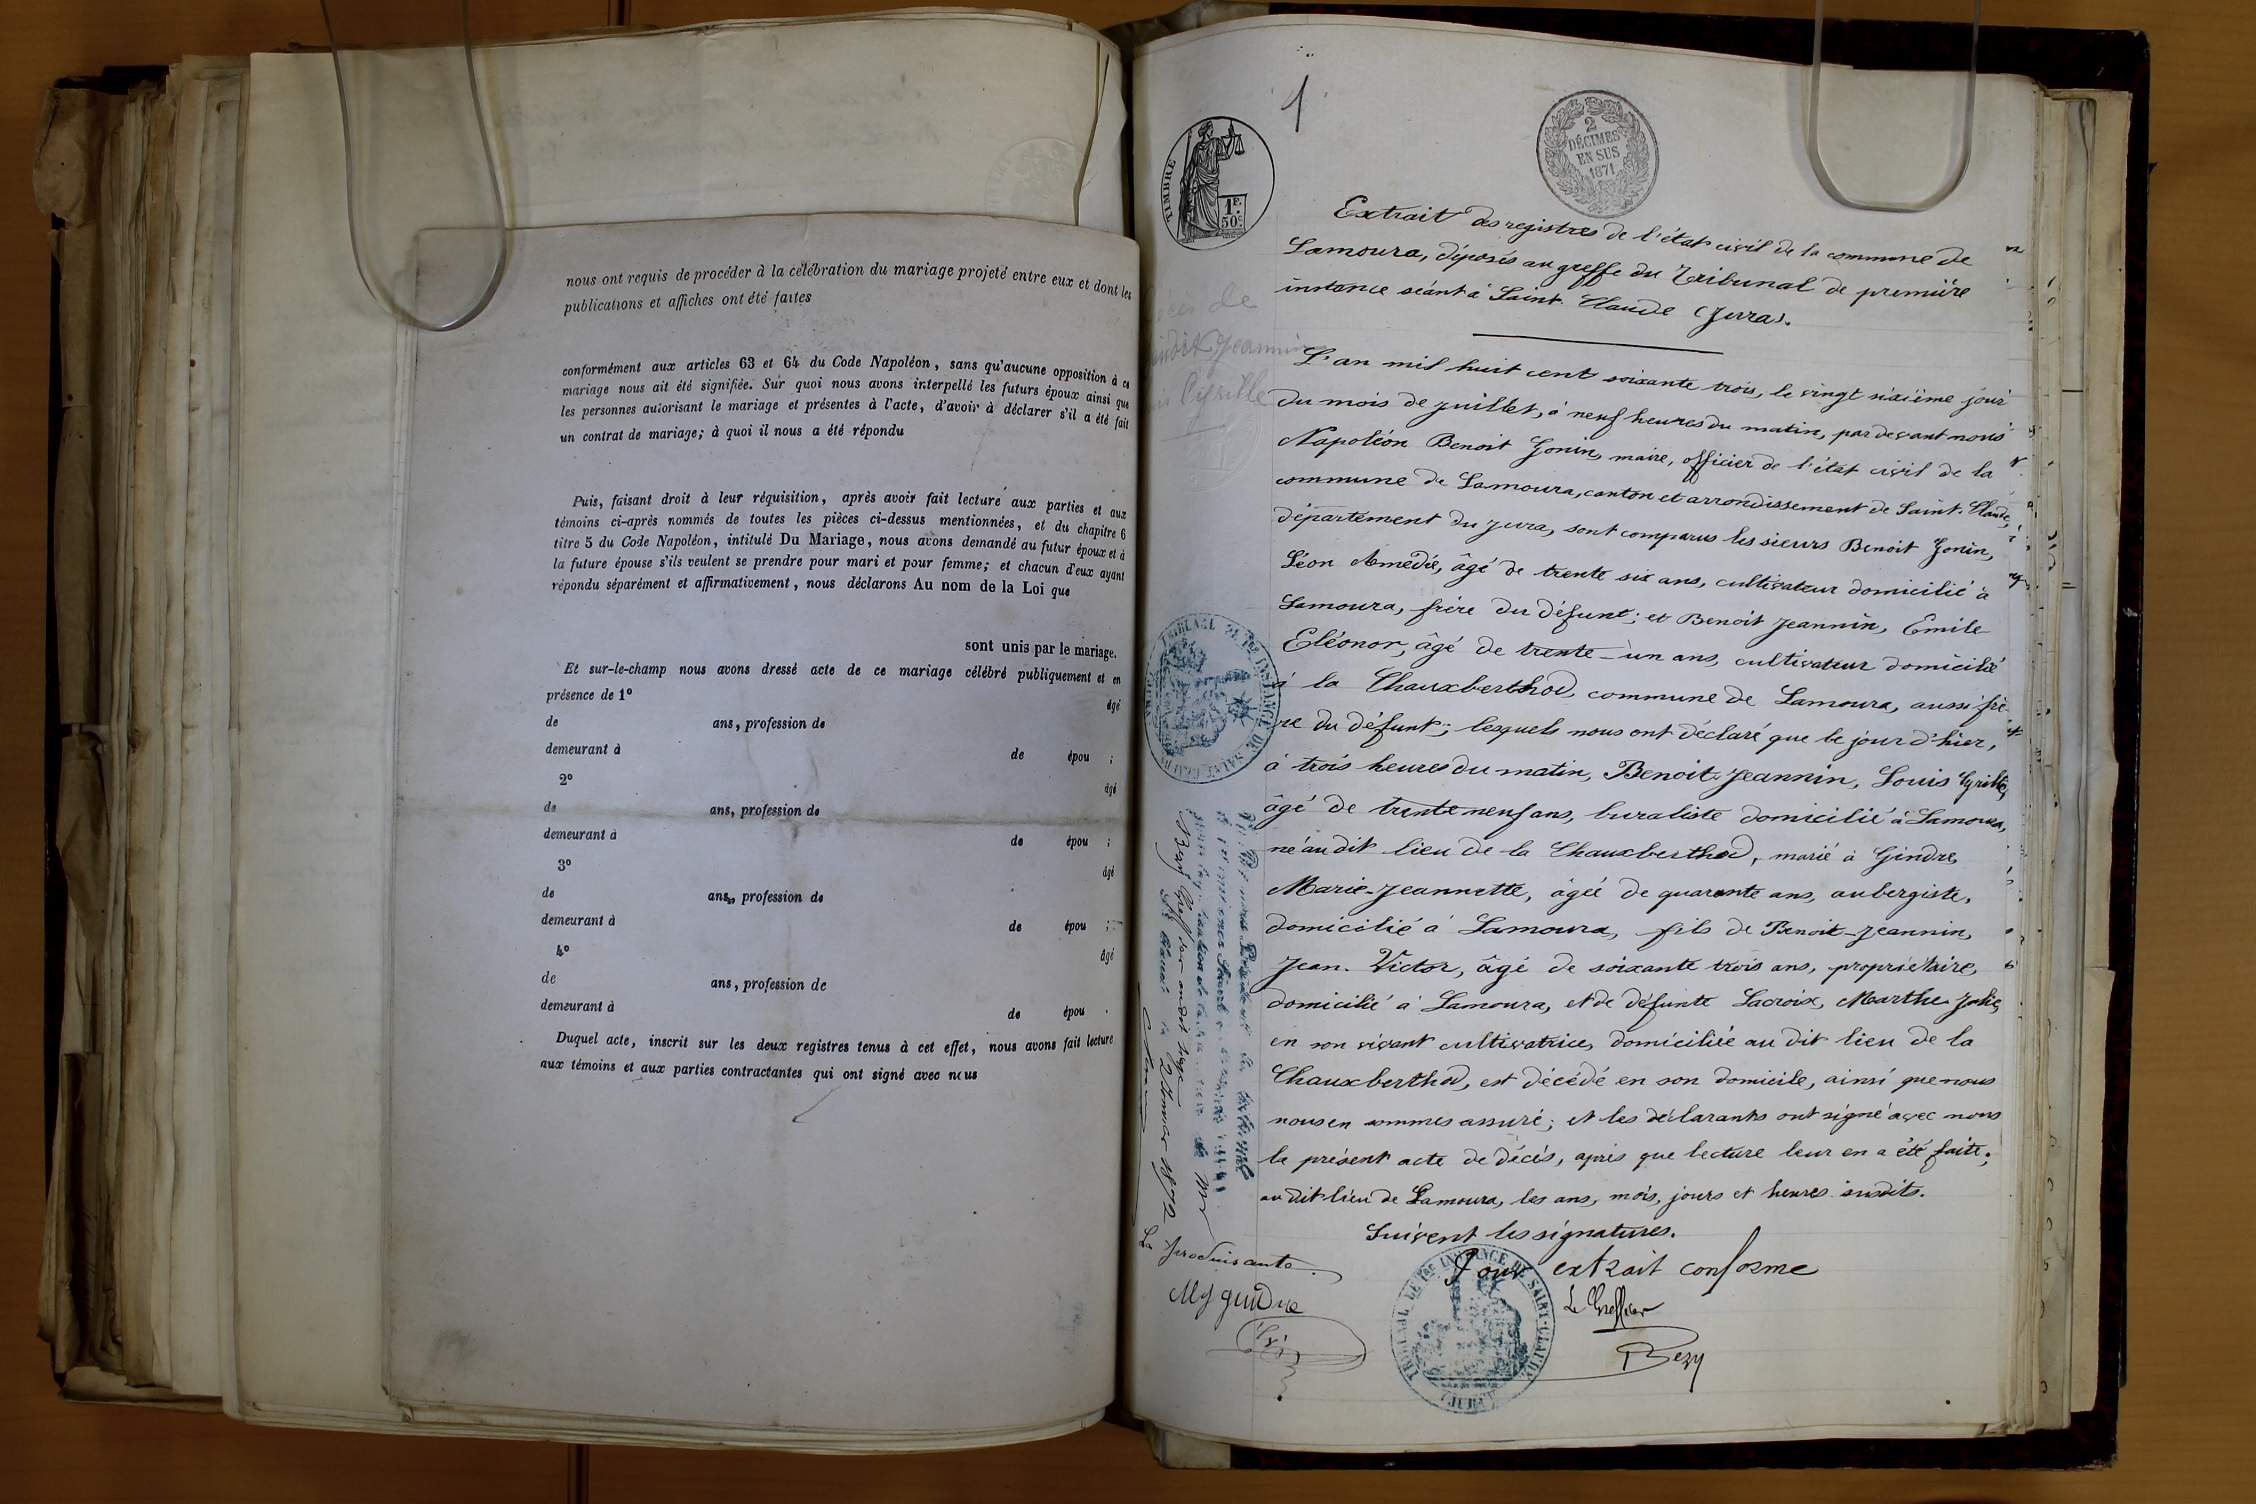 nous ont requis de procéder à la célébration du mariage projeté entre eux et dont les
publications et affiches ont été faites
conformément aux articles 63 et 64 du Code Napoléon, sans qu'aucune opposition à ce
mariage nous ait été signifiée. Sur quoi nous avons interpellé les futurs époux ainsi que
les personnes autorisant le mariage et présentes à l'acte, d'avoir à déclarer s'il a été fait
un contrat de mariage; à quoi il nous a été répondu
Puis, faisant droit à leur réquisition, après avoir fait lecture aux parties et aux
témoins ci-après nommés de toutes les pièces ci-dessus mentionnées, et du chapitre 6
titre 5 du Code Napoléon, intitulé Du Mariage, nous avons demandé au futur époux et à
la future épouse s'ils veulent se prendre pour mari et pour femme; et chacun d'eux ayant
répondu séparément et affirmativement, nous déclarons Au nom de la Loi que
sont unis par le mariage.
Et sur-le-champ nous avons dressé acte de ce mariage célébré publiquement et en
présence de 1° âgé
de ans, profession de
demeurant à de épou ;
2° âgé
de ans, profession de
demeurant à de épou ;
3° âgé
de ans, profession de
demeurant à de épou ;
4° âgé
de ans, profession de
demeurant à de épou .
Duquel acte, inscrit sur les deux registres tenus à cet effet, nous avons fait lecture
aux témoins et aux parties contractantes qui ont signé avec nous
1
TIMBRE
1F. 50c.
2
DÉCIMES
EN SUS
1871
Extrait des registres de l'état civil de la commune de
Lamoura, déposés au greffe du Tribunal de première
instance séant à Saint-Claude (Jura).
L'an mil huit cent soixante trois, le vingt sixième jour
du mois de juillet, à neuf heures du matin, par devant nous
Napoléon Benoit Gonin, maire, officier de l'état civil de la
commune de Lamoura, canton et arrondissement de Saint-Claude,
département du Jura, sont comparus les sieurs Benoit Gonin,
Léon Amédée, âgé de trente six ans, cultivateur domicilié à
Lamoura, frère du défunt; et Benoit Jeannin, Emile
Eléonor, âgé de trente-un ans, cultivateur domicilié
à la Chauxberthod, commune de Lamoura, aussi frè-
re du défunt; lesquels nous ont déclaré que le jour d'hier,
à trois heures du matin, Benoit-Jeannin, Louis Cyrille,
âgé de trente neuf ans, buraliste domicilié à Lamoura,
né au dit lieu de la Chauxberthod, marié à Gindre
Marie-Jeannette, âgée de quarante ans, aubergiste,
domicilié à Lamoura, fils de Benoit-Jeannin,
Jean-Victor, âgé de soixante trois ans, propriétaire,
domicilié à Lamoura, et de défunte Lacroix, Marthe Julie,
en son vivant cultivatrice, domiciliée au dit lieu de la
Chauxberthod, est décédé en son domicile, ainsi que nous
nous en sommes assuré; et les déclarants ont signé avec nous
le présent acte de décès, après que lecture leur en a été faite;
au dit lieu de Lamoura, les ans, mois, jours et heures susdits.
Suivent les signatures.
Pour extrait conforme
Le Greffier
Bezy
TRIBUNAL DE 1RE INSTANCE DE SAINT-CLAUDE
(JURA)
La produisante
MJ gindre